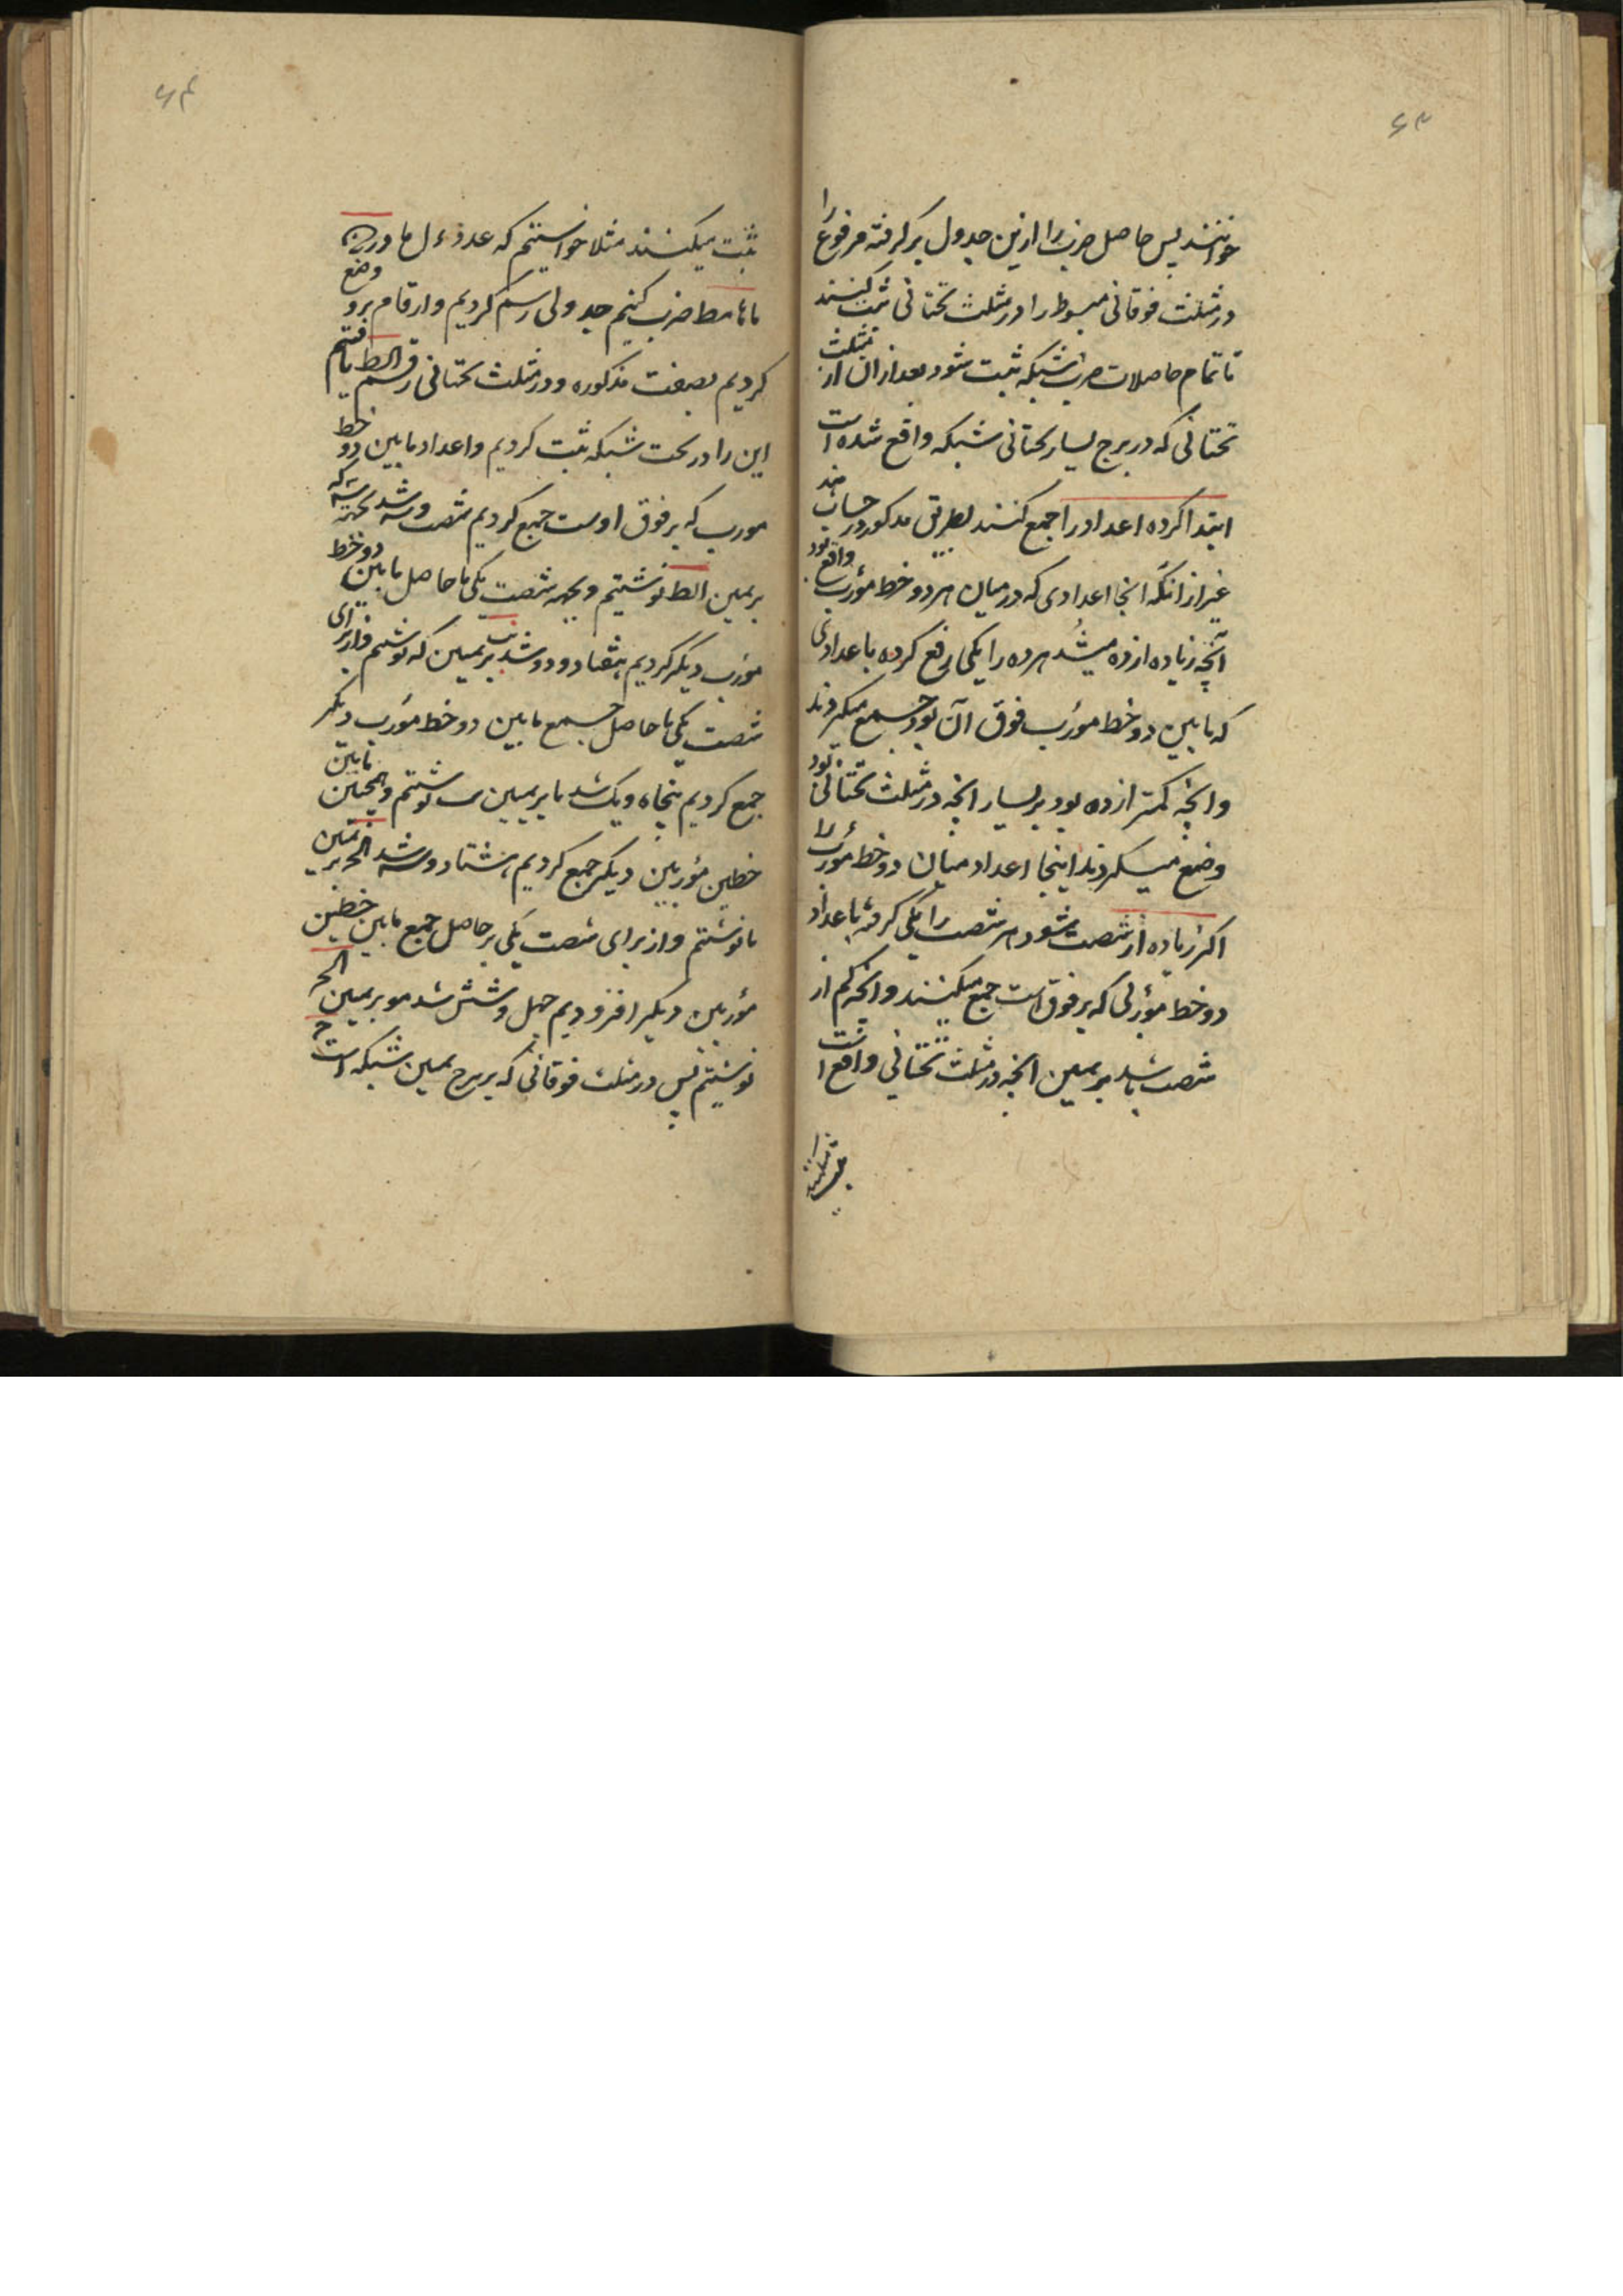 ۶۳
خوانند پس حاصل ضرب را ازین جدول بر گرفته مرفوع را
در مثلث فوقانی مبسوط را در مثلث تحتانی ثبت کنند
تا تمام حاصلات ضرب شبکه ثبت شود بعد از ان از مثلث
تحتانی که در برج یسار تحتانی شبکه واقع شده است
ابتدا کرده اعداد را جمع کنند بطریق مذکور در حساب هند
غیر از انکه انجا اعدادی که در میان هر دو خط مؤرب واقع بود
آنچه زیاده از ده میشد هر ده را یکی رفع کرده با عدادی
که ما بین دو خط مؤرب فوق آن بود جمع میکردند
و انچه کمتر از ده بود بر یسار انچه در مثلث تحتانی بود
وضع میکردند اینجا اعداد میان دو خط مؤرب را
اکر زیاده از شصت شود هر شصت را یکی کرفته با عداد
دو خط مؤربی که بر فوق است جمع میکنند و انچه کم از
شصت باشد بر یمین انچه در مثلث تحتانی واقع است
۶۴
ثبت میکنند مثلا خواستیم که عدد ل ما در
ما مط ضرب کنیم جدولی رسم کردیم و ارقام برو وضع
کردیم بصفت مذکوره و در مثلث تحتانی رقم الط یافتیم
این را در تحت شبکه ثبت کردیم و اعداد ما بین دو خط
مورب که بر فوق اوست جمع کردیم شصت و سه شد سه که
بر یمین الط نوشتیم و بجهه شصت یکی با حاصل ما بین دو خط
مؤرب دیکر کردیم هفتاد و دو شد یب بر یمین که نوشتیم و از برای
شصت یکی با حاصل جمع ما بین دو خط مؤرب دیکر
جمع کردیم پنجاه و یک شد نا بر یمین یب نوشتیم و همچنین ما بین
خطین مؤربین دیکر جمع کردیم هشتاد و سه شد الحر بر یمین
نا نوشتیم و از برای شصت یکی بر حاصل جمع ما بین خطین
مؤربین دیکر افزودیم چهل و شش شد مو بر یمین الحر
نوشتیم پس در مثلث فوقانی که بر برج یمین شبکه است